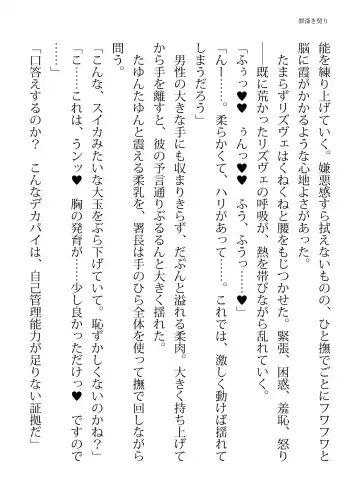 罪深き契り
能を練り上げていく。嫌悪感すら拭えないものの、ひと撫でごとにフワフワと
脳に霞がかかるような心地よさがあった。
たまらずリズヴェはくねくねと腰をもじつかせた。緊張、困惑、羞恥、怒り
――既に荒かったリズヴェの呼吸が、熱を帯びながら乱れていく。
「ふぅっ♥　ぅんっ♥♥　ふう、ふうっ……♥」
「んー……。柔らかくて、ハリがあって……。これでは、激しく動けば揺れて
しまうだろう」
男性の大きな手にも収まりきらず、だぷんと溢れる柔肉。大きく持ち上げて
から手を離すと、彼の予言通りぶるるんと大きく揺れた。
たゆんたゆんと震える柔乳を、署長は手のひら全体を使って撫で回しながら
問う。
「こんな、スイカみたいな大玉をぶら下げていて。恥ずかしくないのかね？」
「こ……これは、うンッ♥　胸の発育が……少し良かっただけっ♥　ですので
……」
「口答えするのか？　こんなデカパイは、自己管理能力が足りない証拠だ」